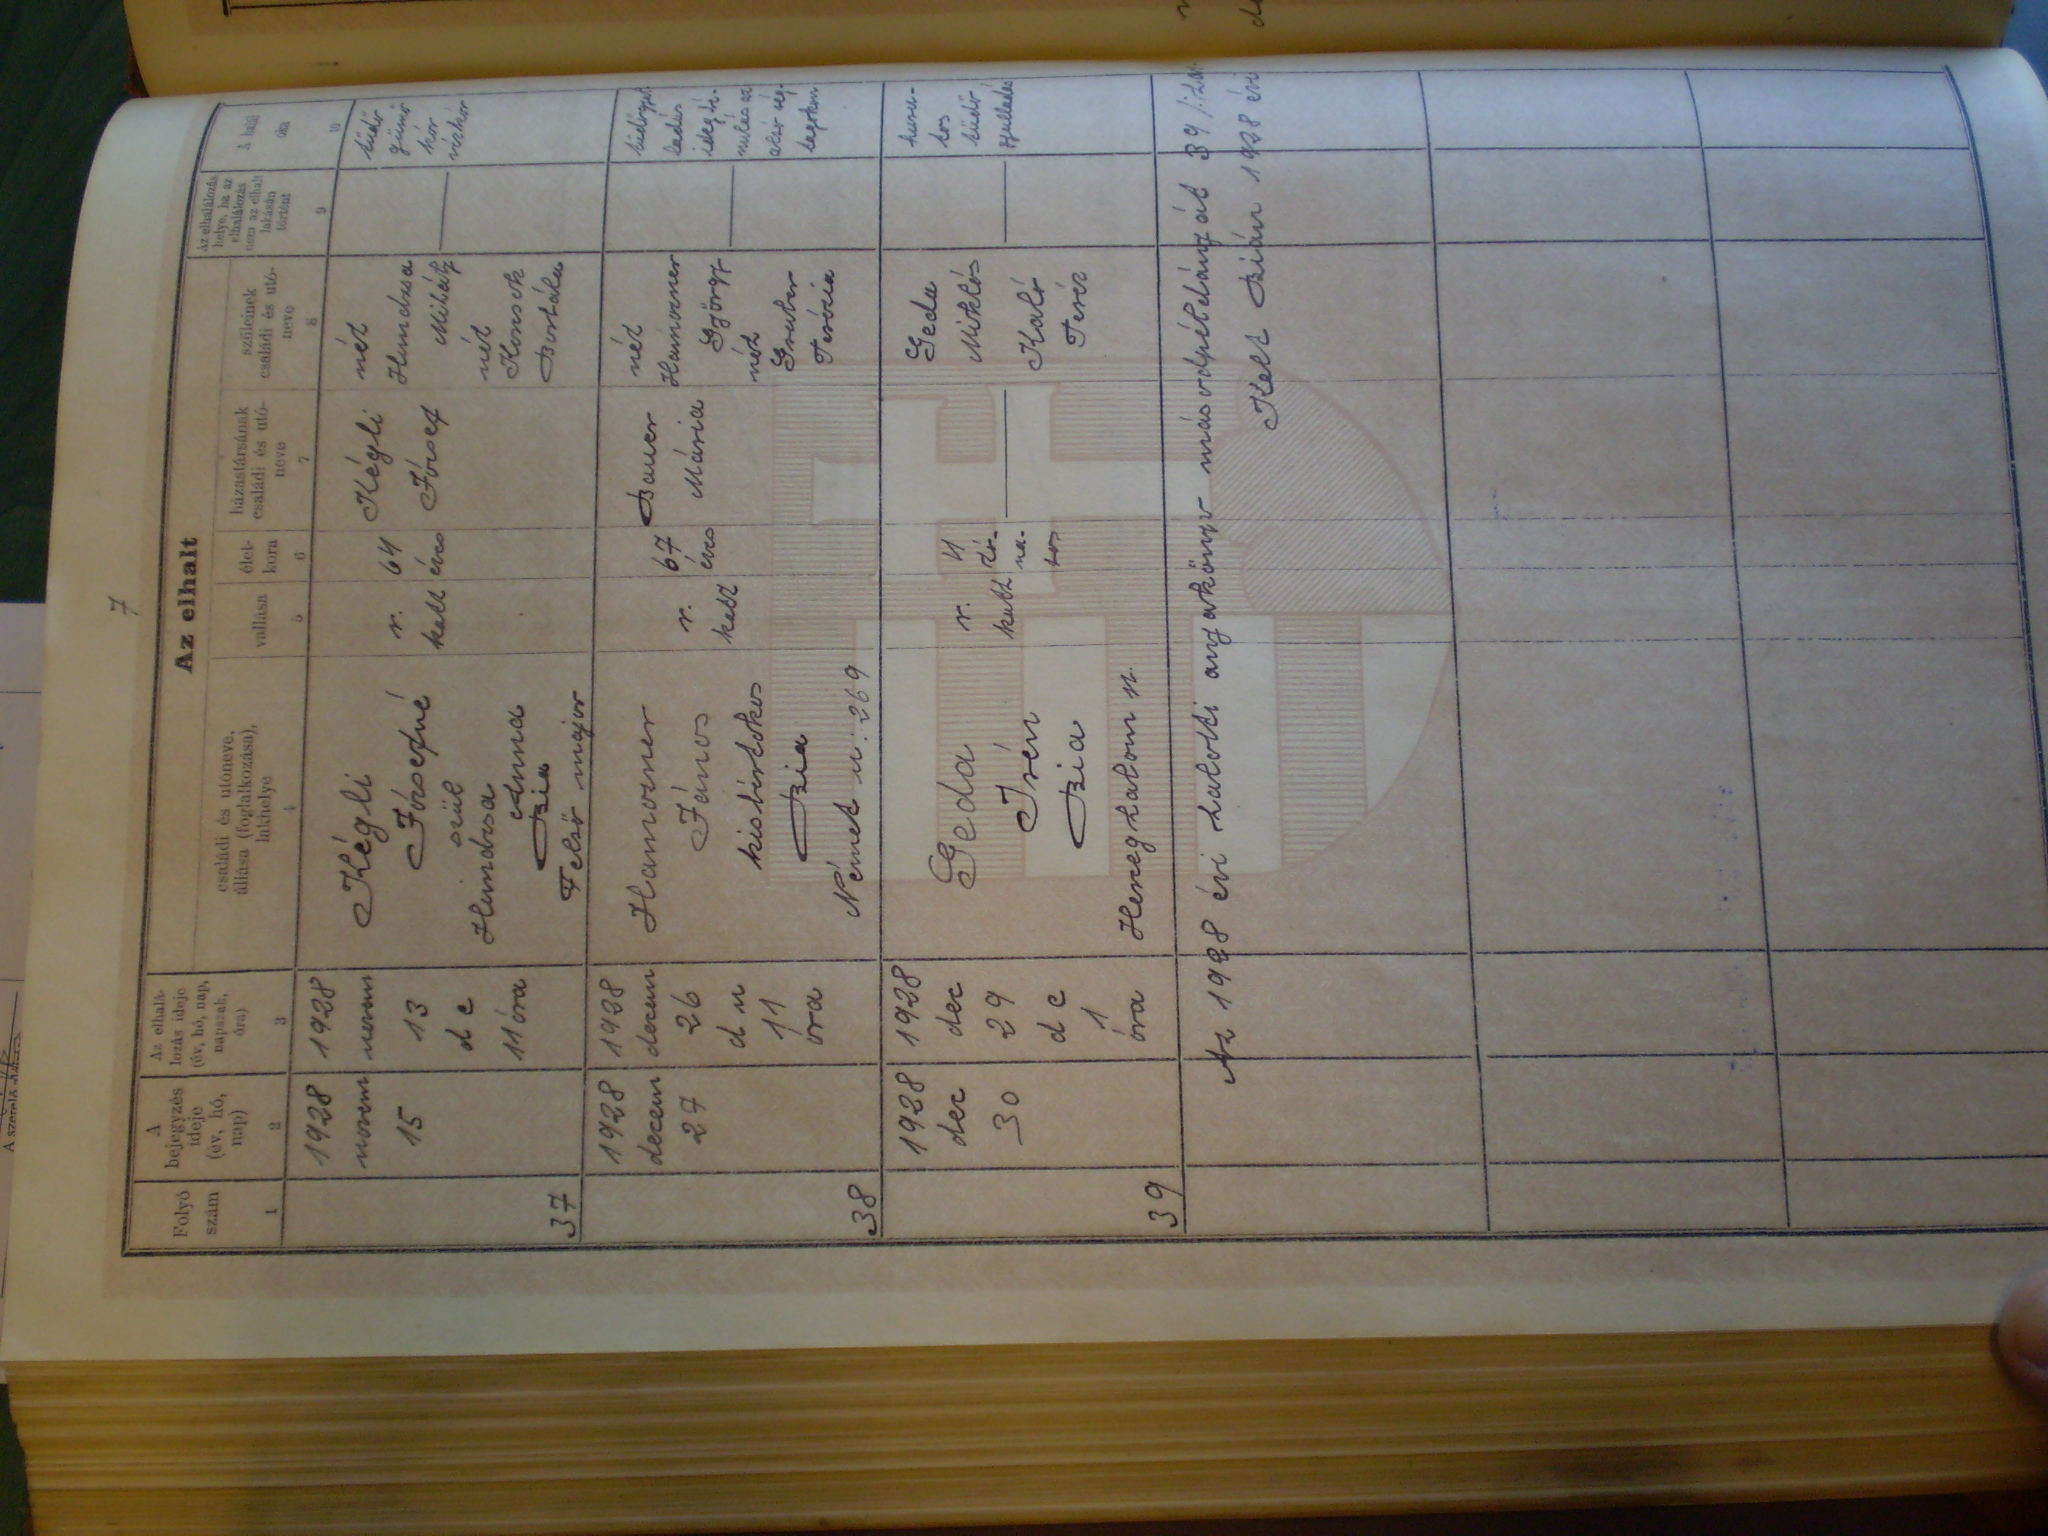 7
Az elhalt
Folyó
szám
1
A
bejegyzés
ideje
(év, hó,
nap)
2
Az elhalá-
lozás ideje
(év, hó, nap,
napszak,
óra)
3
családi és utóneve,
állása (foglalkozása),
lakhelye
4
vallása
5
élet-
kora
6
házastársának
családi és utó-
neve
7
szüleinek
családi és utó-
neve
8
Az elhalálozás
helye, ha az
elhalálozás
nem az elhalt
lakásán
történt
9
A halál
oka
10
37
1928
novem
15
1928
novem
13
d e
11 óra
Kégli
Józsefné
szül
Hundzsa
Anna
Bia
Felső major
r.
kath
64
éves
Kégli
József
néh
Hundzsa
Mihály
néh
Koncsek
Borbála
tüdő
gümő
kór
vízkór
38
1928
decem
27
1928
decem
26
d u
11
óra
Hamovner
János
kisbirtokos
Bia
Német u. 269
r.
kath
67
éves
Bauer
Mária
néh
Hamovner
György
néh
Gruber
Terézia
39
1928
dec
30
1928
dec
29
d e
1
óra
Geda
Irén
Bia
Herceghalom n.
r.
kath
4
ó-
na-
pos
Geda
Miklós
Kaló
Teréz
huru-
tos
tüdő
gyulladás
Az 1928 évi halotti anyakönyv másodpéldányát 39
Kelt Bián 1928 évi